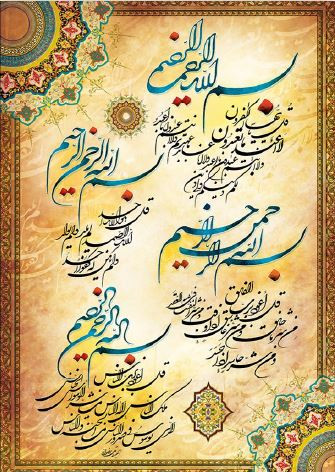 بسم الله الرحمن الرحيم
قل يا أيها الكافرون
لا أعبد ما تعبدون ولا أنتم عابدون ما أعبد
ولا أنا عابد ما عبدتم ولا أنتم عابدون ما أعبد
لكم دينكم ولي دين
بسم الله الرحمن الرحيم
قل هو الله أحد
الله الصمد لم يلد ولم يولد
ولم يكن له كفوا أحد
بسم الله الرحمن الرحيم
قل أعوذ برب الفلق
من شر ما خلق ومن شر غاسق إذا وقب
ومن شر النفاثات في العقد
ومن شر حاسد إذا حسد
بسم الله الرحمن الرحيم
قل أعوذ برب الناس
ملك الناس إله الناس من شر الوسواس الخناس
الذي يوسوس في صدور الناس من الجنة والناس